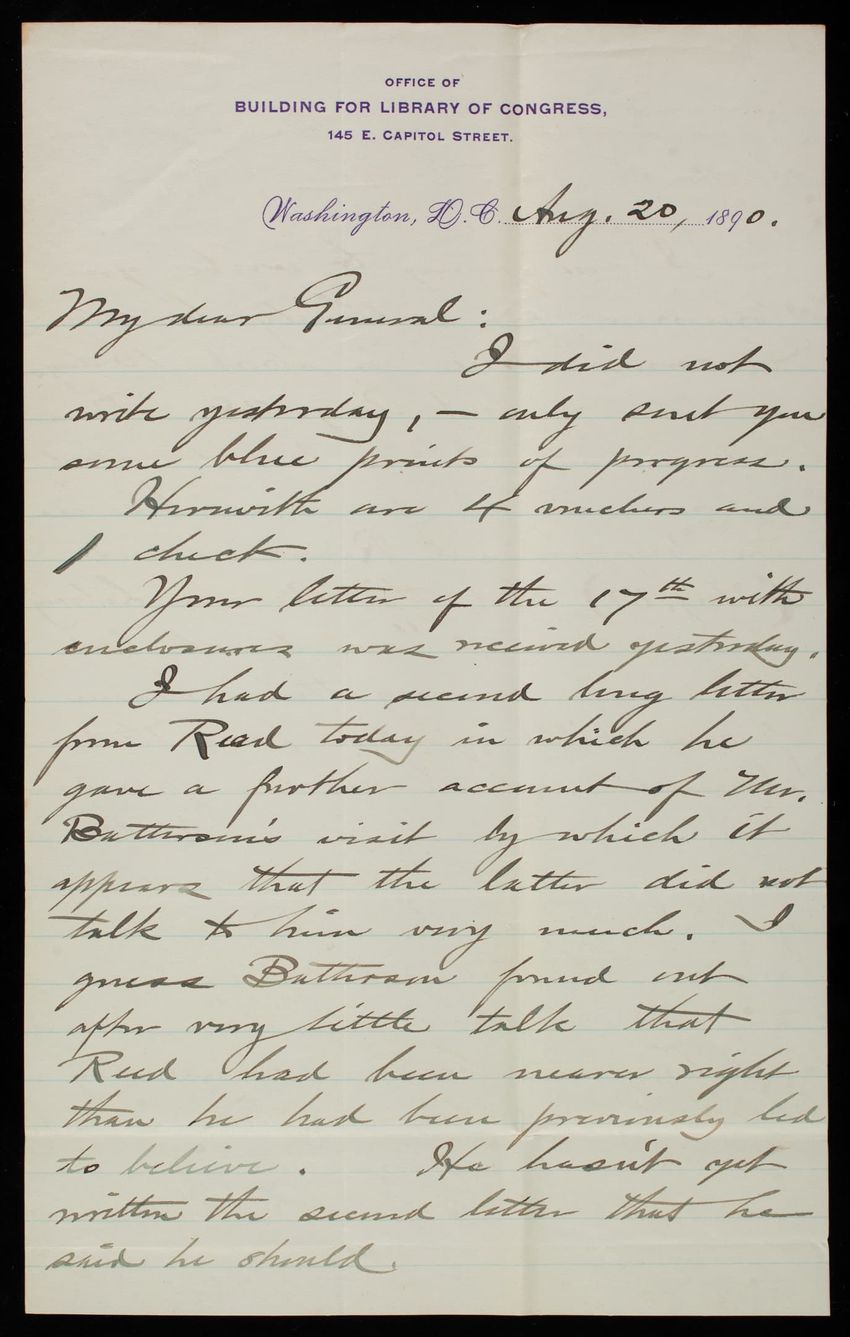 OFFICE OF
BUILDING FOR LIBRARY OF CONGRESS,
145 E. CAPITOL STREET.
Washington, D.C. Aug. 20, 1890.
My dear General:
I did not
write yesterday, — only sent you
some blue prints of progress.
Herewith are 4 vouchers and
1 check.
Your letter of the 17th with
enclosures was received yesterday.
I had a second long letter
from Reed today in which he
gave a further account of Mr.
Batterson's visit by which it
appears that the latter did not
talk to him very much. I
guess Batterson found out
after very little talk that
Reed had been nearer right
than he had been previously led
to believe. He hasn't yet
written the second letter that he
said he should.